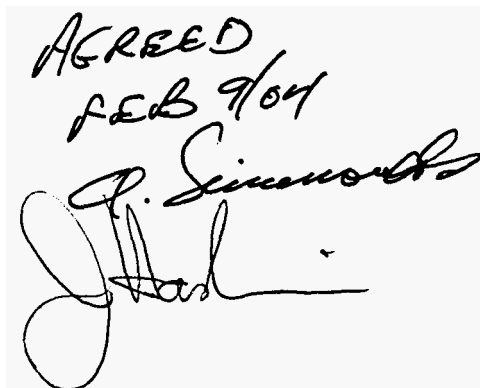 AGREED
FEB 9/04
A. Simmonds